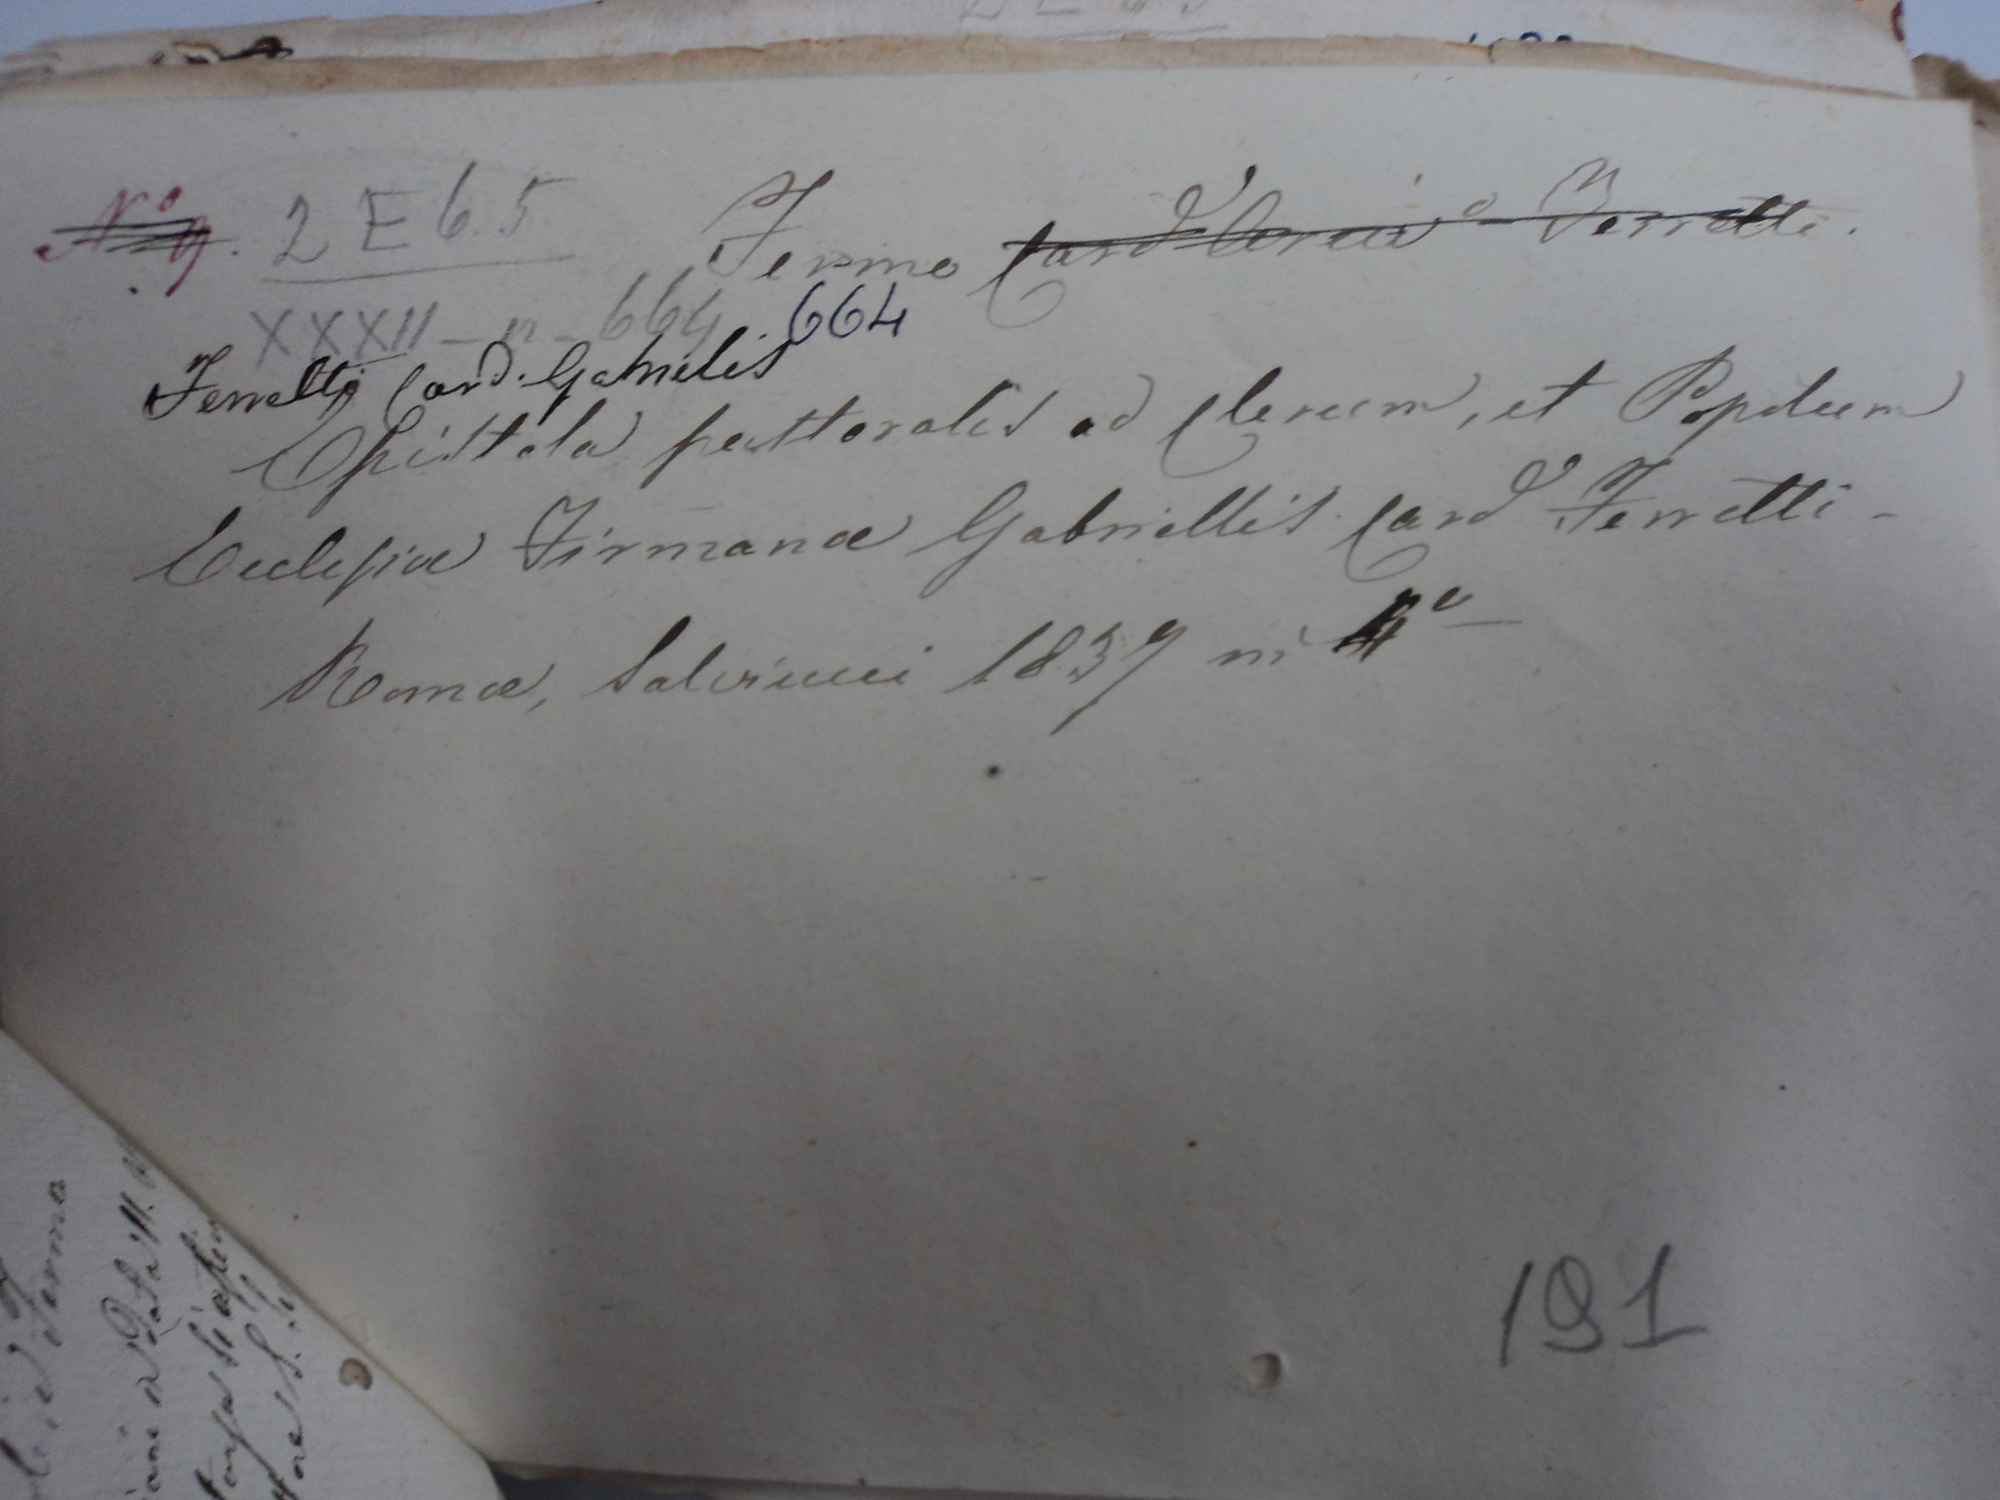 N.º 9. 2 E 6.5 Fermo Card. Ferretti.
XXXII - n - 664 664
Ferretti Card. Gabrielis
Epistola pastoralis ad Clerum, et Populum
Ecclesiæ Firmanæ Gabriellis Card Ferretti -
Romæ, Salviucci 1837 in 4º
191